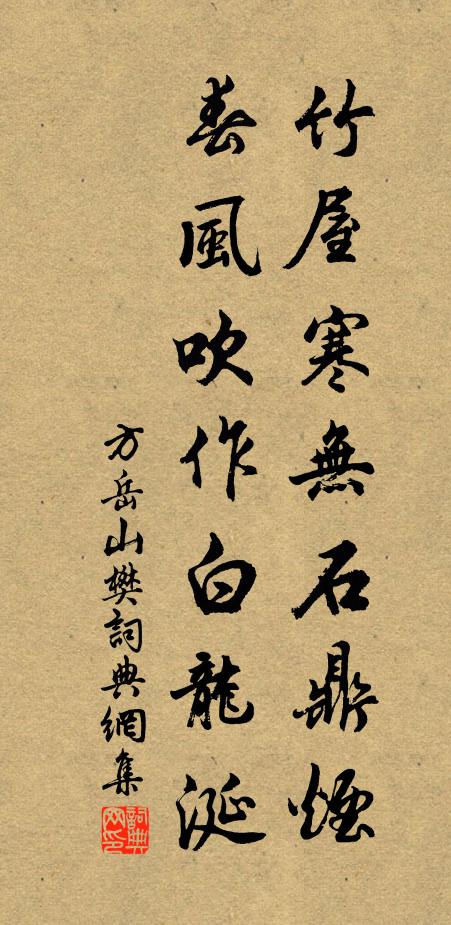 竹屋寒無石鼎煙
春風吹作白龍涎
方岳山樊詞典網集
詞典网印